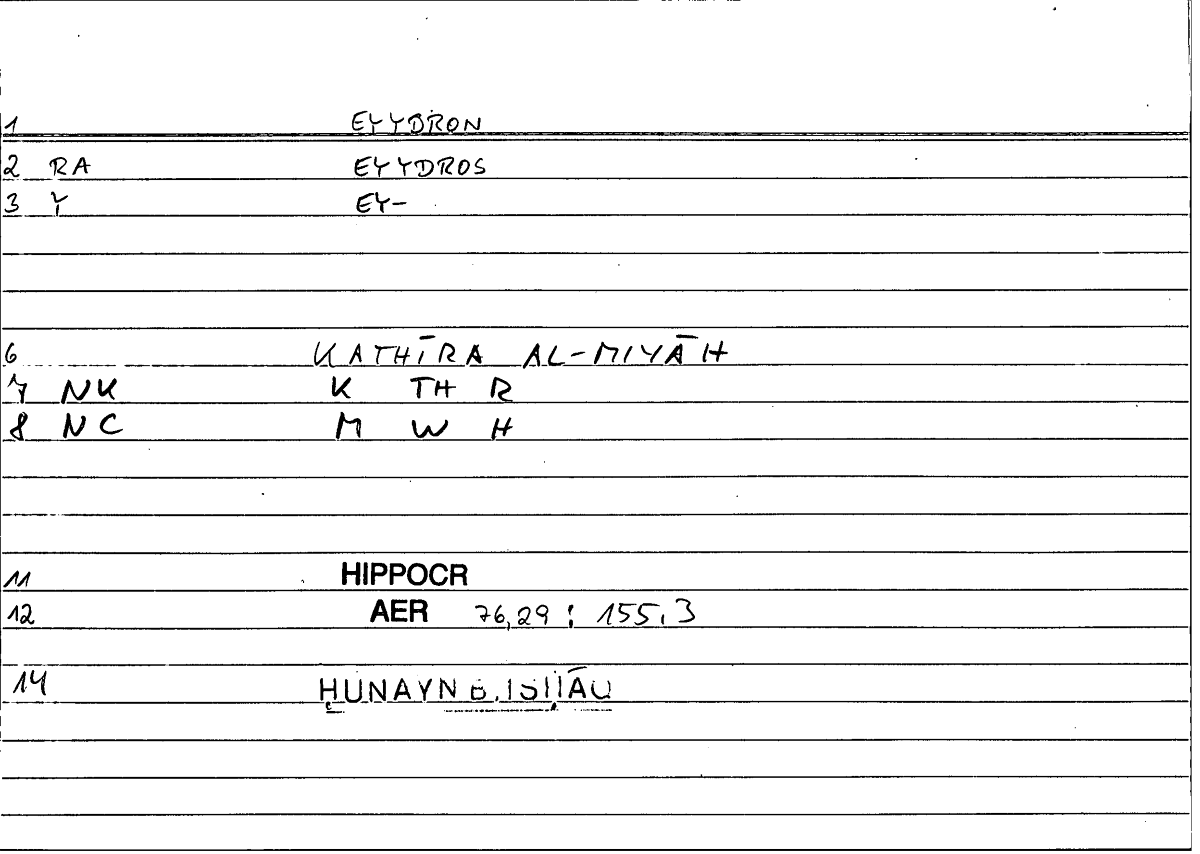 1 EYYDRON
2 RA EYYDROS
3 Y EY-
6 KATHĪRA AL-MIYĀH
7 NK K TH R
8 NC M W H
11 HIPPOCR
12 AER 76,29 : 155,3
14 ḤUNAYN B. ISḤĀQ